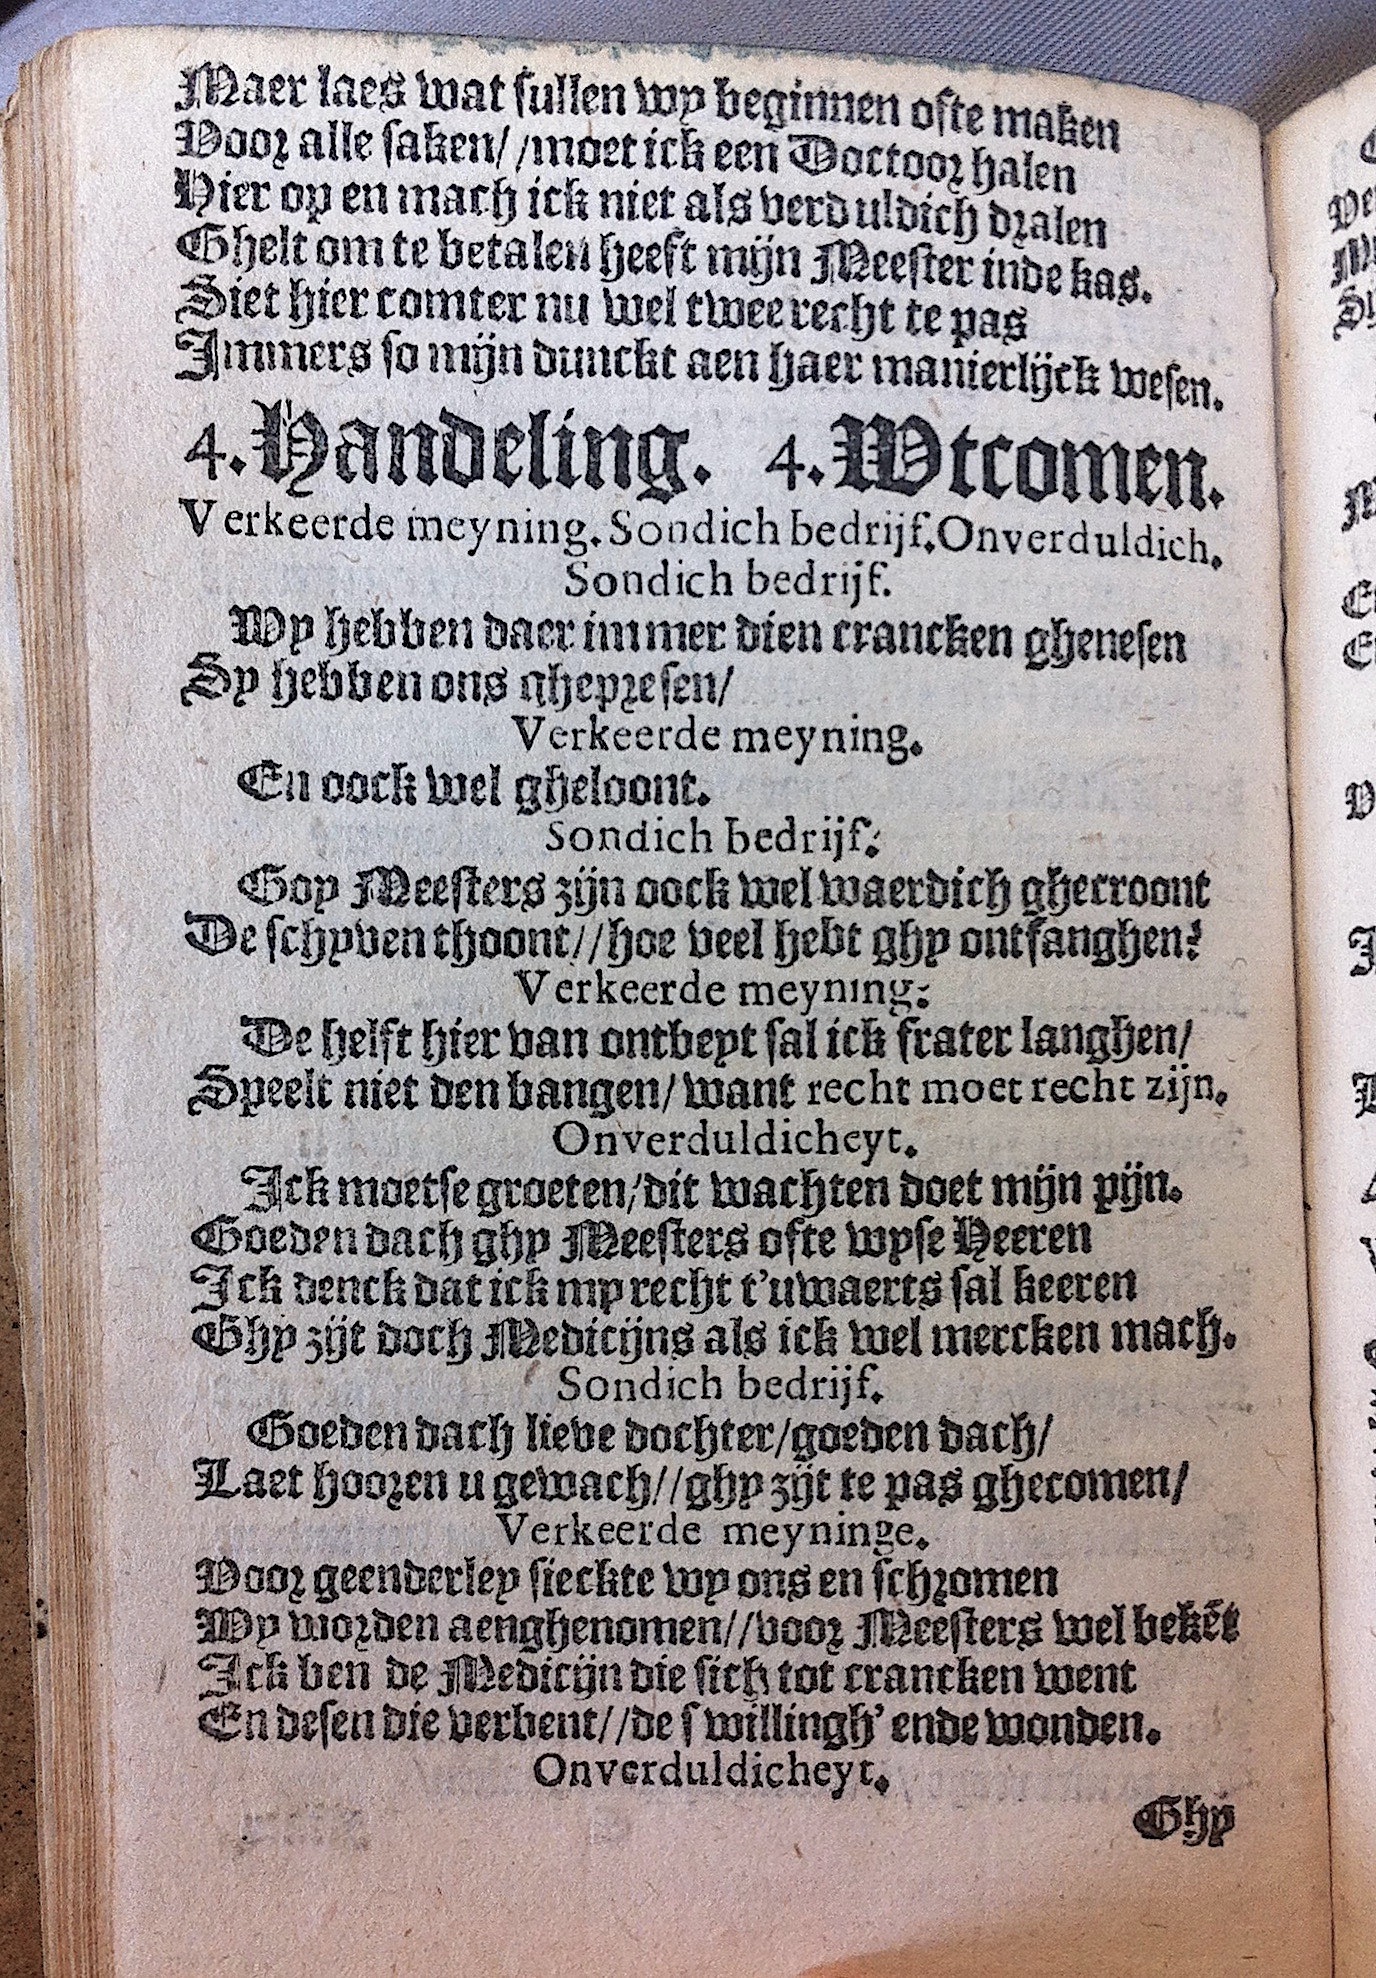 Maer laes wat sullen wy beginnen ofte maken
Voor alle saken//moet ick een Doctoor halen
Hier op en mach ick niet als verduldich dralen
Ghelt om te betalen heeft mijn Meester inde kas.
Siet hier comter nu wel twee recht te pas
Immers so mijn dunckt aen haer manierlijck wesen.
4. Handeling. 4. Wtcomen.
Verkeerde meyning. Sondich bedrijf. Onverduldich.
Sondich bedrijf.
Wy hebben daer immer dien crancken ghenesen
Sy hebben ons ghepresen/
Verkeerde meyning.
En oock wel gheloont.
Sondich bedrijf.
Goy Meesters zijn oock wel waerdich ghecroont
De schyven thoont//hoe veel hebt ghy ontfanghen?
Verkeerde meyning:
De helft hier van ontbeyt sal ick frater langhen/
Speelt niet den bangen/want recht moet recht zijn.
Onverduldicheyt.
Ick moetse groeten/dit wachten doet mijn pijn.
Goeden dach ghy Meesters ofte wyse Heeren
Ick denck dat ick my recht t'uwaerts sal keeren
Ghy zijt doch Medicijns als ick wel mercken mach.
Sondich bedrijf.
Goeden dach lieve dochter/goeden dach/
Laet hooren u gewach//ghy zijt te pas ghecomen/
Verkeerde meyninge.
Voor geenderley sieckte wy ons en schromen
Wy worden aenghenomen//voor Meesters wel bekēt
Ick ben de Medicijn die sich tot crancken went
En desen die verbent//de s willingh' ende wonden.
Onverduldicheyt.
Ghy